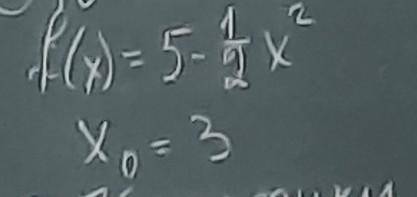 f(x) = 5 - \frac{1}{2} x^2
x_0 = 3